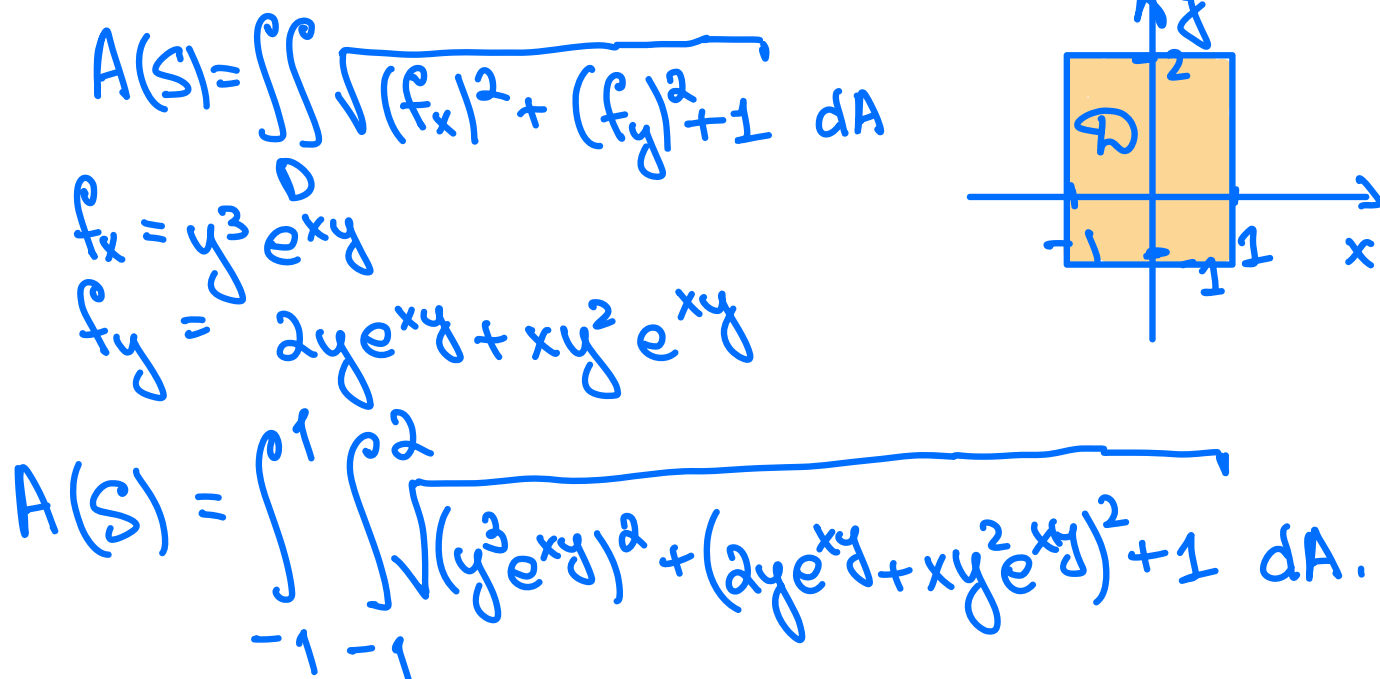 A(S) = ∬_D √((f_x)² + (f_y)² + 1) dA
f_x = y³ e^{xy}
f_y = 2ye^{xy} + xy² e^{xy}
A(S) = ∫_{-1}^{1} ∫_{-1}^{2} √((y³e^{xy})² + (2ye^{xy} + xy²e^{xy})² + 1) dA.
y
2
D
-1
1
-1
x